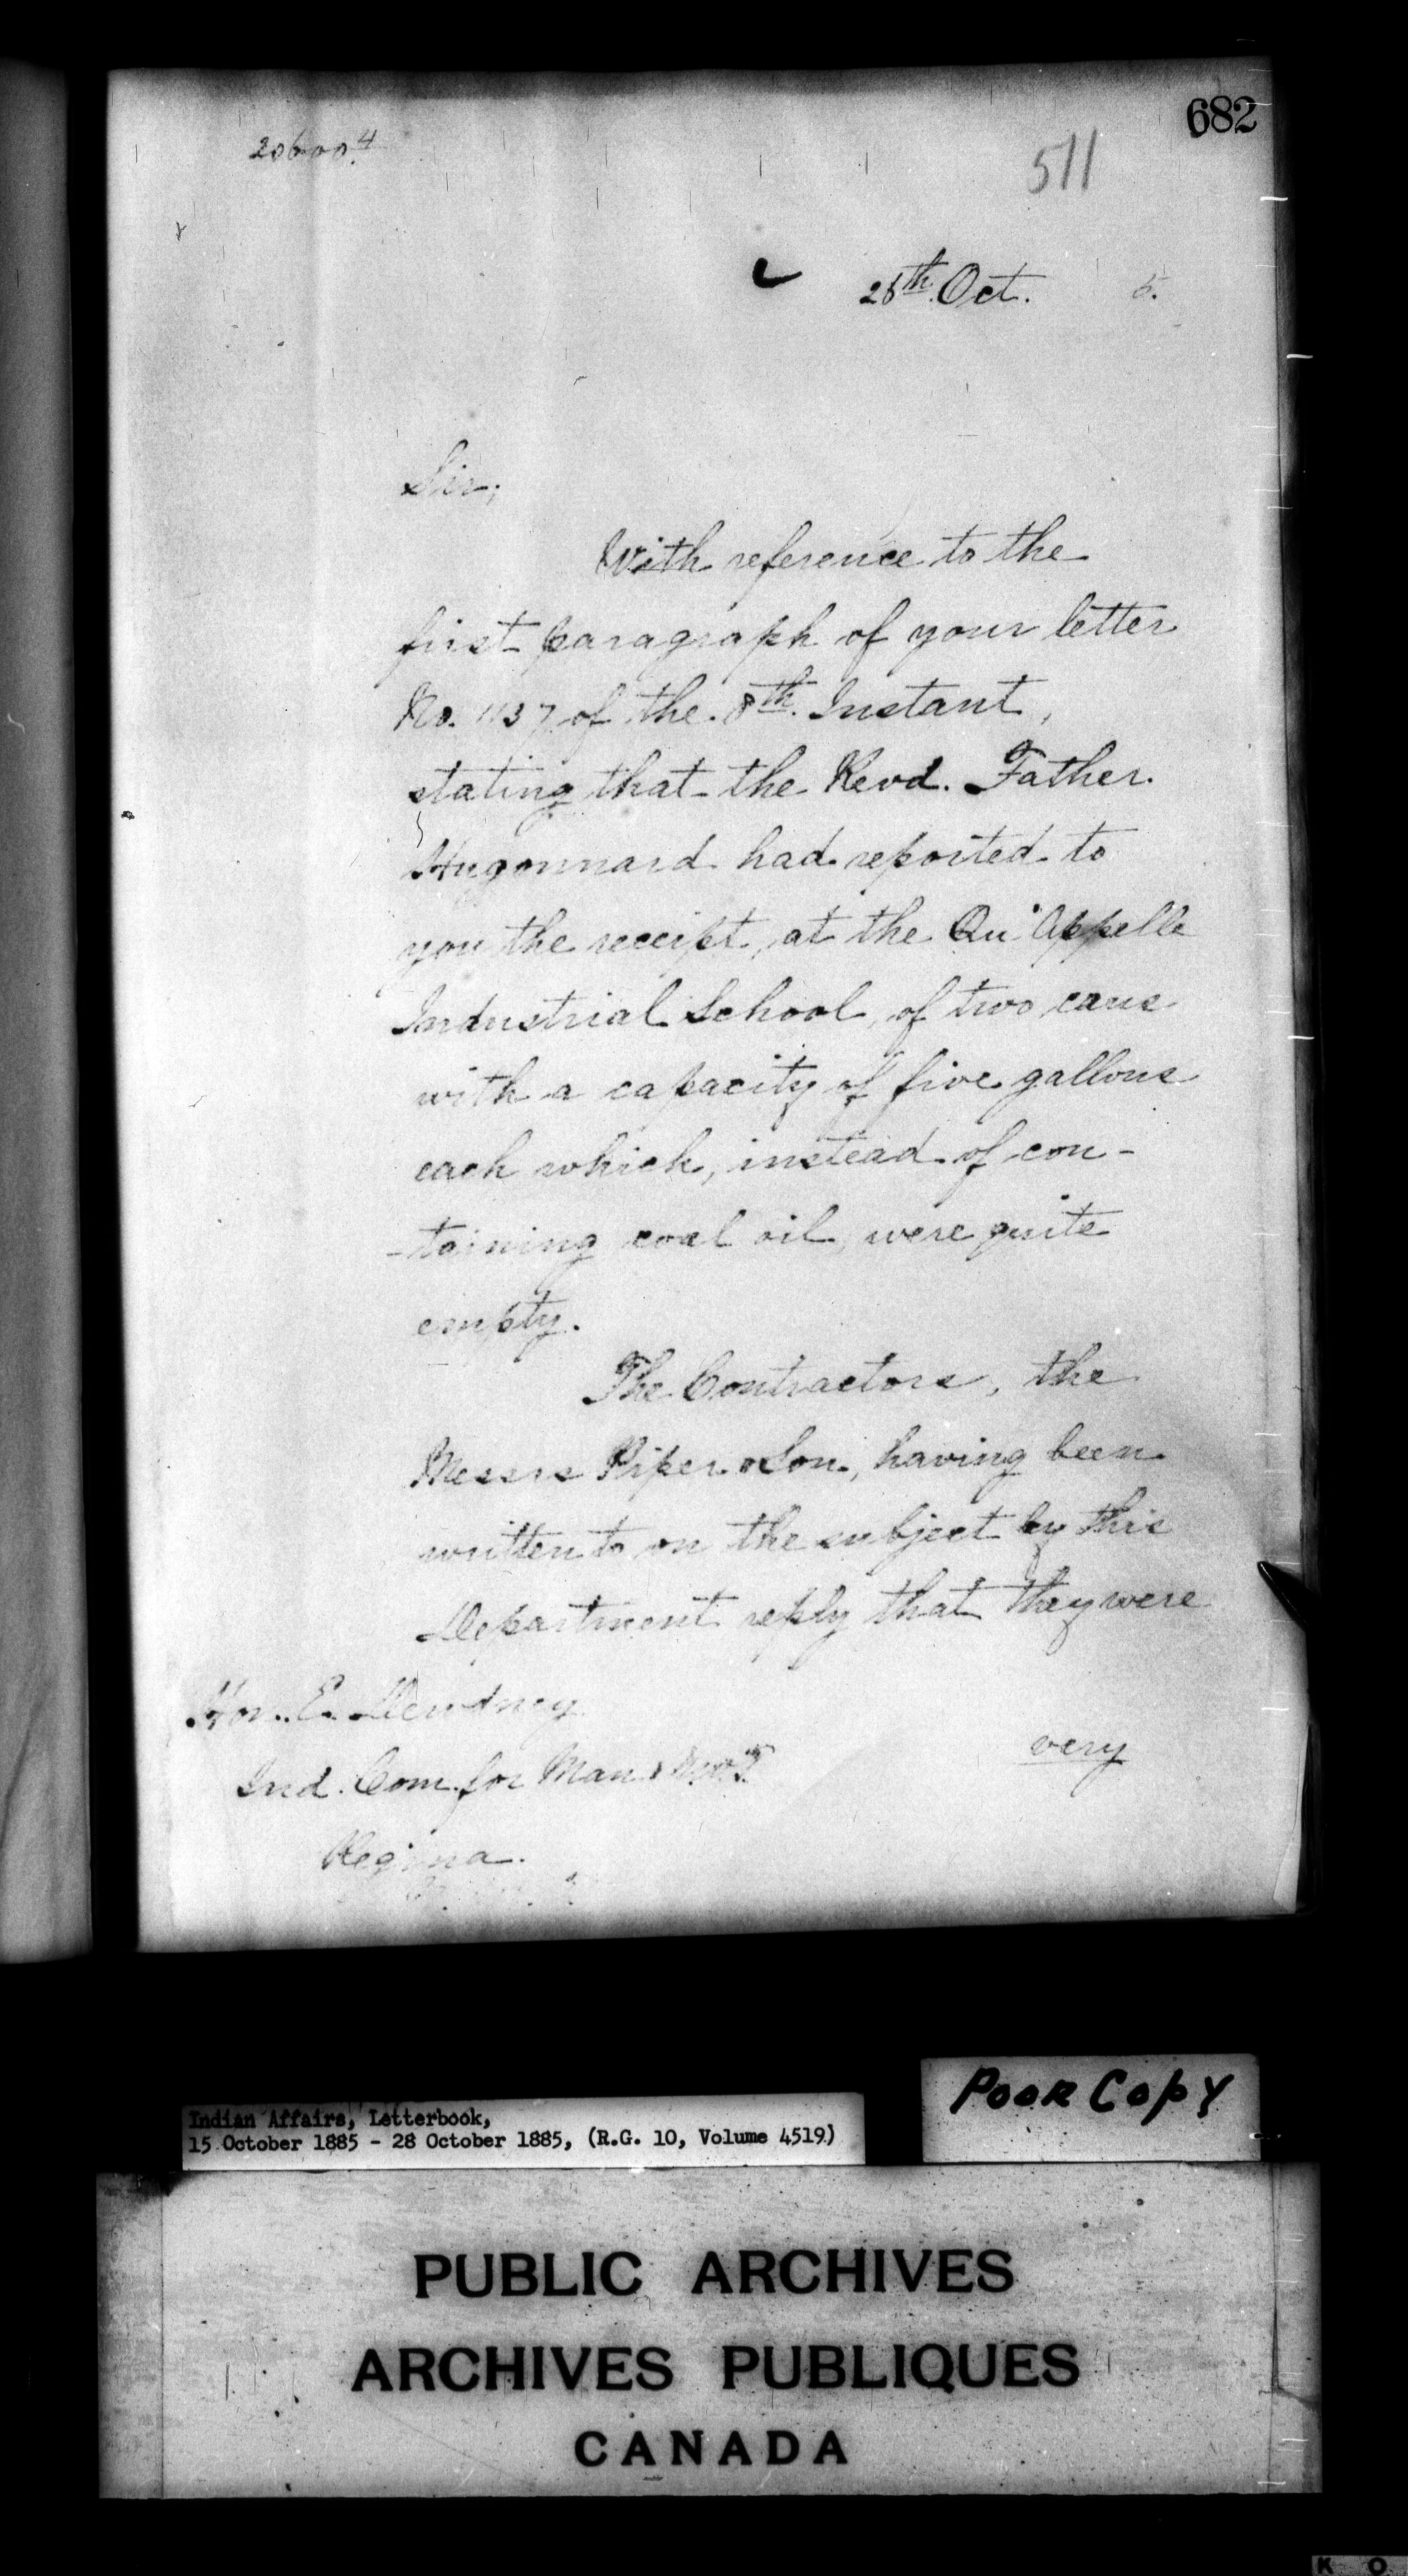 682
20600.4
511
26th Oct. 5.
Sir,
With reference to the
first paragraph of your letter
No. 1137 of the 8th Instant,
stating that the Revd. Father
Hugonnard had reported to
you the receipt, at the Qu'Appelle
Industrial School, of two cans
with a capacity of five gallons
each which, instead of con-
-taining coal oil, were quite
empty.
The Contractors, the
Messrs Piper & Son, having been
written to on the subject by this
Department reply that they were
Hon. E. Dewdney
very
Ind. Com. for Man & N.W.T.
Regina.
Poor Copy
Indian Affairs, Letterbook,
15 October 1885 - 28 October 1885, (R.G. 10, Volume 4519)
PUBLIC ARCHIVES
ARCHIVES PUBLIQUES
CANADA
K O